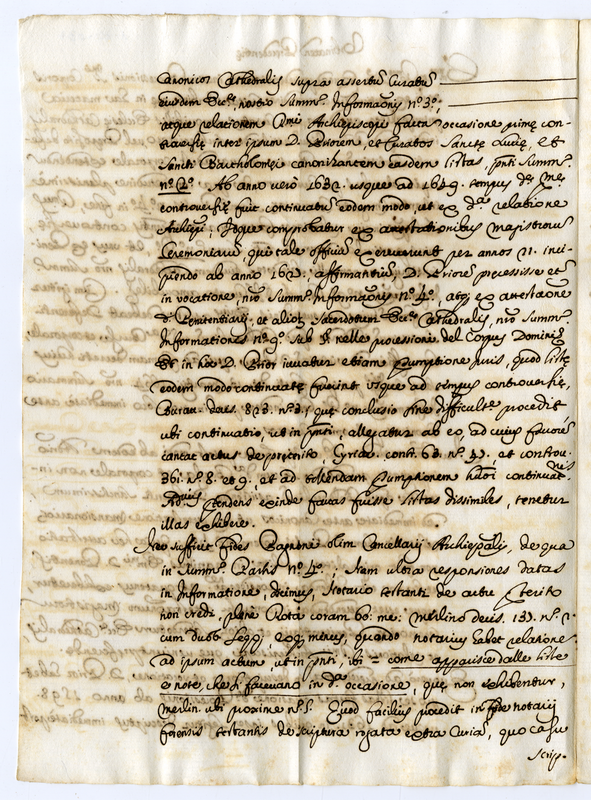 Canonicos Cathedralis supra assertus Curatus
eiusdem Ecc.ę, nostro Summ.º Informat.nis nº 3º.
atque relationem Archiepiscopi facta occasione primę con-
trauersię inter ipsum D. Priorem, et Curatos Sanctę Lucię, et
Sancti Bartholomęi canonizantem easdem listas, pnti Summ.º
nº 2º. Ab anno verò 1632. usque ad 1649. tempus
controuersię fuit continuatus eodem modo, ut ex d.ª relatione
Archiepi; Idque comprobatur ex attestationibus Magistrorum
Ceremoniarum, qui tale officium exercuerunt per annos 21. inci-
piendo ab anno 1623; affirmantium, D. Priorem precessisse et
in vocatione, nro Summ.º Informat.nis nº 4º, atque ex attestatione
D. Penitentiarij, et aliorum Sacerdotum Ecc.ę Cathedralis, nro Summ.º
Informationis nº 9º. sub  nelle processioni del Corpus Domini
Et in hoc D. Prior iuuatur etiam pręsumptione iuris, quod listę
eodem modo continuatę fuerint usque ad tempus controuersię,
Buratt. decis. 823. nº 3., quę conclusio sine difficultate procedit
ubi continuatio, ut in pnti, allegatur ab eo, ad cuius fauorem
cantat actus de pręterito, Gyriac. cont. 63. nº 47. et controu.
361. nº 8. et 9. et ad tollendam pręsumptionem  continuat.nis
Aduersus prętendens exinde factas fuisse listas dissimiles, tenetur
illas exhibere.
Nec sufficit fides Bagnoni olim Cancellarij Archiepalis, de qua
in Summ.º Partis nº 4º; Nam ultra responsiones datas
in Informatione, dicimus, Notario testanti de actu pręterito
non credi, plenè Rota coram bo: me: Merlino decis. 137. nº
cum duobus seqq; eoque minus, quando notarius habet relationem
ad ipsum actum, ut in pnti, ibi = come apparisce dalle liste
e note, che si faceuano in d.ª occasione, quę non exhibentur,
Merlin. ubi proxime nº 5. Quod facilius procedit in fide notarij
forensis testantis de scriptura rogata extra Curiam, quo casu
scrip-